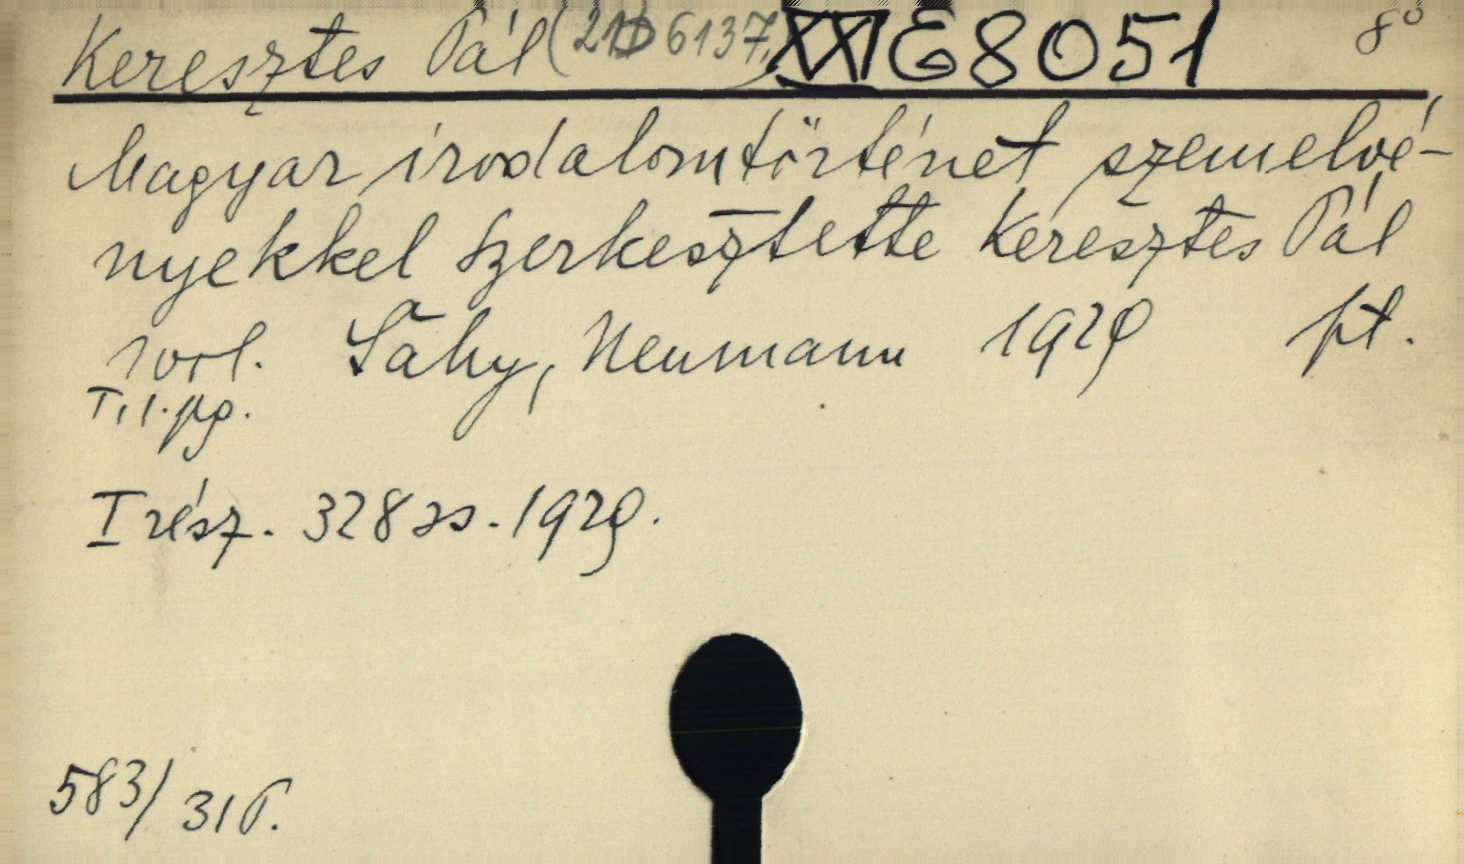 Keresztes Pál (21D 6137.) XXI E8051 8°
Magyar irodalomtörténet szemelvé-
nyekkel szerkesztette Keresztes Pál
Sahy, Neumann 1929 pt.
I, 1. pg.
I rész. 328 ss. 1929.
583/31 P.